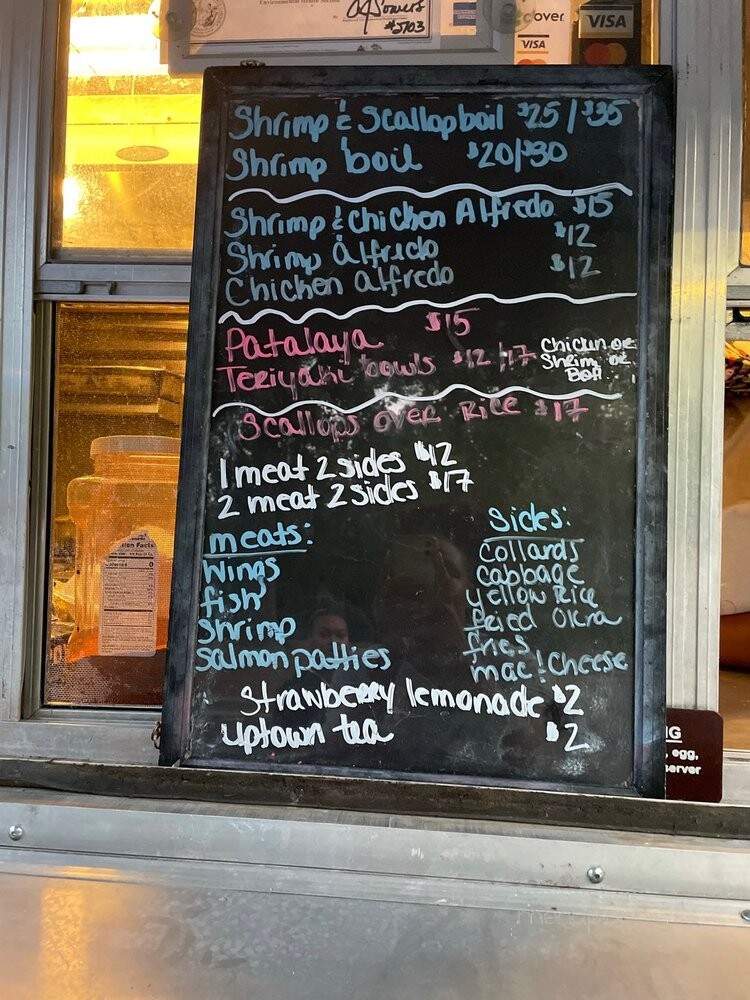 #5703
cover
VISA
VISA
Shrimp & Scallop boil $25/$35
Shrimp boil $20/$30
Shrimp & Chicken Alfredo $15
Shrimp alfredo $12
Chicken alfredo $12
Patalaya $15
Teriyaki bowls $12/17 Chicken or Shrim or Both
Scallops over Rice $17
1 meat 2 sides $12
2 meat 2 sides $17
meats:
Wings
fish
Shrimp
Salmon patties
Sides:
Collards
Cabbage
yellow Rice
fried Okra
fries
mac & Cheese
Strawberry lemonade $2
uptown tea $2
Facts
G
, egg,
erver